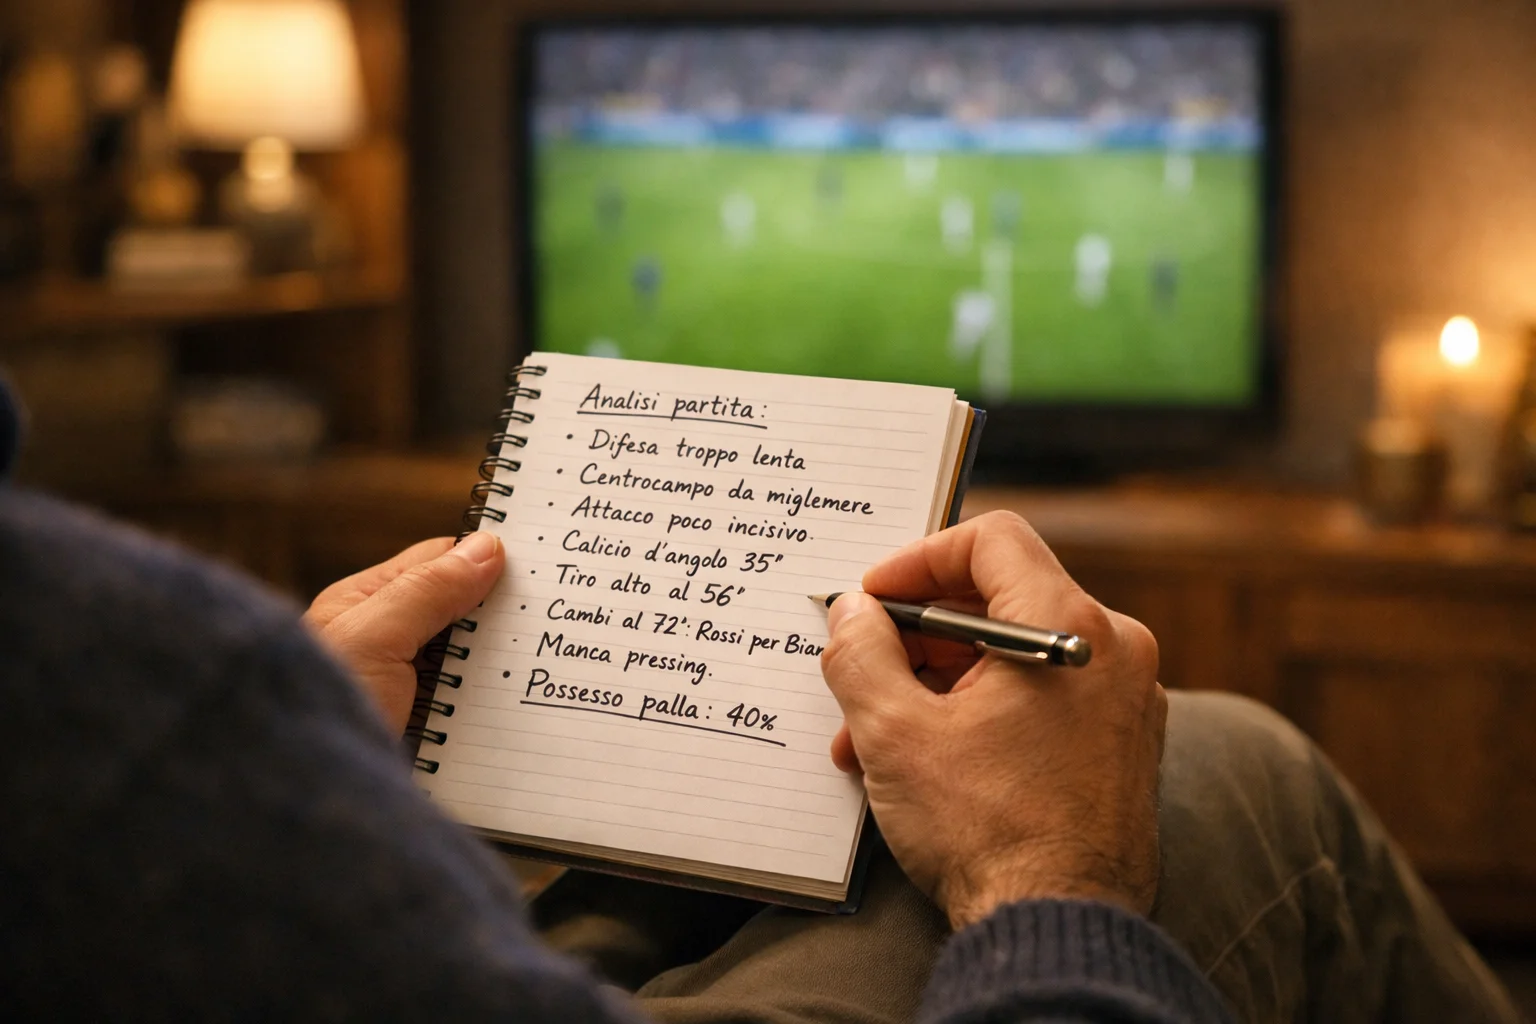 Analisi partita:
• Difesa troppo lenta
• Centrocampo da miglemere
• Attacco poco incisivo.
• Calicio d'angolo 35"
• Tiro alto al 56"
• Cambi al 72': Rossi per Bian
• Manca pressing.
• Possesso palla: 40%